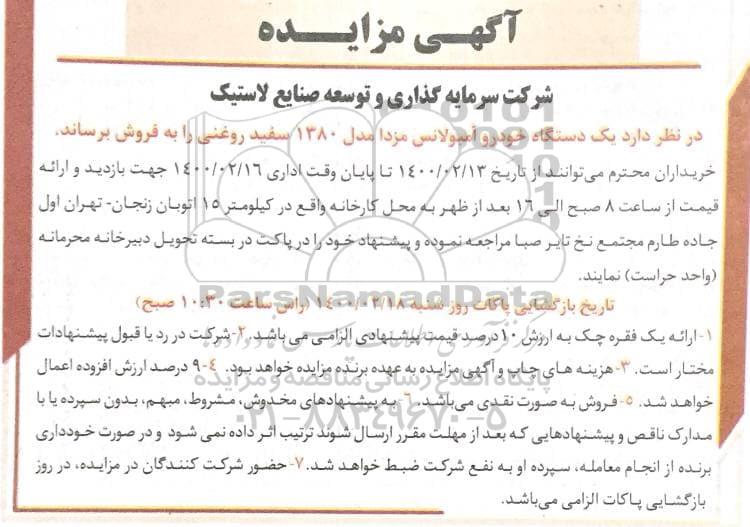 آگهی مزایده
شرکت سرمایه گذاری و توسعه صنایع لاستیک
در نظر دارد یک دستگاه خودرو آمبولانس مزدا مدل ۱۳۸۰ سفید روغنی را به فروش برساند.
خریداران محترم می‌توانند از تاریخ ۱۴۰۰/۰۲/۱۳ تا پایان وقت اداری ۱۴۰۰/۰۲/۱۶ جهت بازدید و ارائه
قیمت از ساعت ۸ صبح الی ۱۶ بعد از ظهر به محل کارخانه واقع در کیلومتر ۱۵ اتوبان زنجان- تهران اول
جاده طارم مجتمع نخ تایر صبا مراجعه نموده و پیشنهاد خود را در پاکت در بسته تحویل دبیرخانه محرمانه
(واحد حراست) نمایند.
ParsNamadData
تاریخ بازگشایی پاکات روز شنبه ۱۴۰۰/۰۲/۱۸ (راس ساعت ۱۰:۳۰ صبح)
۱- ارائه یک فقره چک به ارزش ۱۰ درصد قیمت پیشنهادی الزامی می باشد. ۲- شرکت در رد یا قبول پیشنهادات
مختار است. ۳- هزینه های چاپ و آگهی مزایده به عهده برنده مزایده خواهد بود. ۴- ۹ درصد ارزش افزوده اعمال
پایگاه اطلاع رسانی مناقصه و مزایده
خواهد شد. ۵- فروش به صورت نقدی می‌باشد. ۶- به پیشنهادهای مخدوش، مشروط، مبهم، بدون سپرده یا با
۰۲۱-۸۸۳۴۹۶۷۰-۵
مدارک ناقص و پیشنهادهایی که بعد از مهلت مقرر ارسال شوند ترتیب اثر داده نمی شود و در صورت خودداری
برنده از انجام معامله، سپرده او به نفع شرکت ضبط خواهد شد. ۷- حضور شرکت کنندگان در مزایده، در روز
بازگشایی پاکات الزامی می‌باشد.